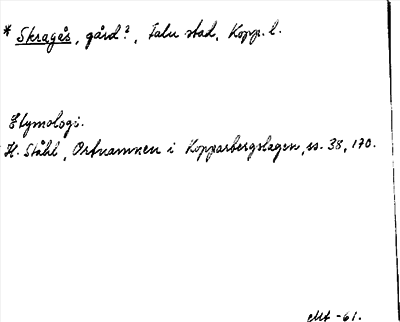 * Skragås, gård?, Falu stad, Kopp. l.
Etymologi.
H. Ståhl, Ortnamnen i Kopparbergslagen, ss. 38, 170.
EMt -61.